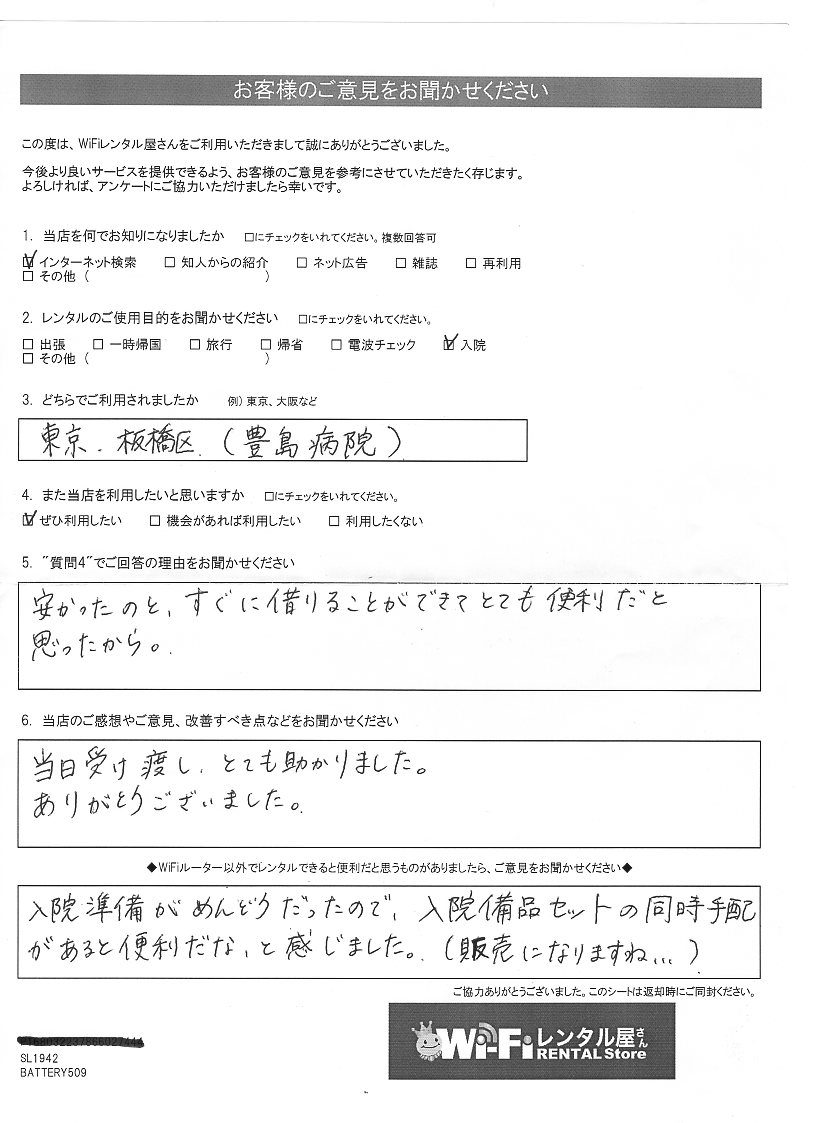 お客様のご意見をお聞かせください
この度は、WiFiレンタル屋さんをご利用いただきまして誠にありがとうございました。
今後より良いサービスを提供できるよう、お客様のご意見を参考にさせていただきたく存じます。
よろしければ、アンケートにご協力いただけましたら幸いです。
1. 当店を何でお知りになりましたか □にチェックをいれてください。複数回答可
☑ インターネット検索 □ 知人からの紹介 □ ネット広告 □ 雑誌 □ 再利用
□ その他 ( )
2. レンタルのご使用目的をお聞かせください □にチェックをいれてください。
□ 出張 □ 一時帰国 □ 旅行 □ 帰省 □ 電波チェック ☑ 入院
□ その他 ( )
3. どちらでご利用されましたか 例) 東京、大阪など
東京、板橋区 (豊島病院)
4. また当店を利用したいと思いますか □にチェックをいれてください。
☑ ぜひ利用したい □ 機会があれば利用したい □ 利用したくない
5. "質問4"でご回答の理由をお聞かせください
安かったのと、すぐに借りることができてとても便利だと
思ったから。
6. 当店のご感想やご意見、改善すべき点などをお聞かせください
当日受け渡し、とても助かりました。
ありがとうございました。
◆WiFiルーター以外でレンタルできると便利だと思うものがありましたら、ご意見をお聞かせください◆
入院準備がめんどうだったので、入院備品セットの同時手配
があると便利だな、と感じました。(販売になりますね...)
ご協力ありがとうございました。このシートは返却時にご同封ください。
Wi-Fiレンタル屋さん
RENTAL Store
SL1942
BATTERY509